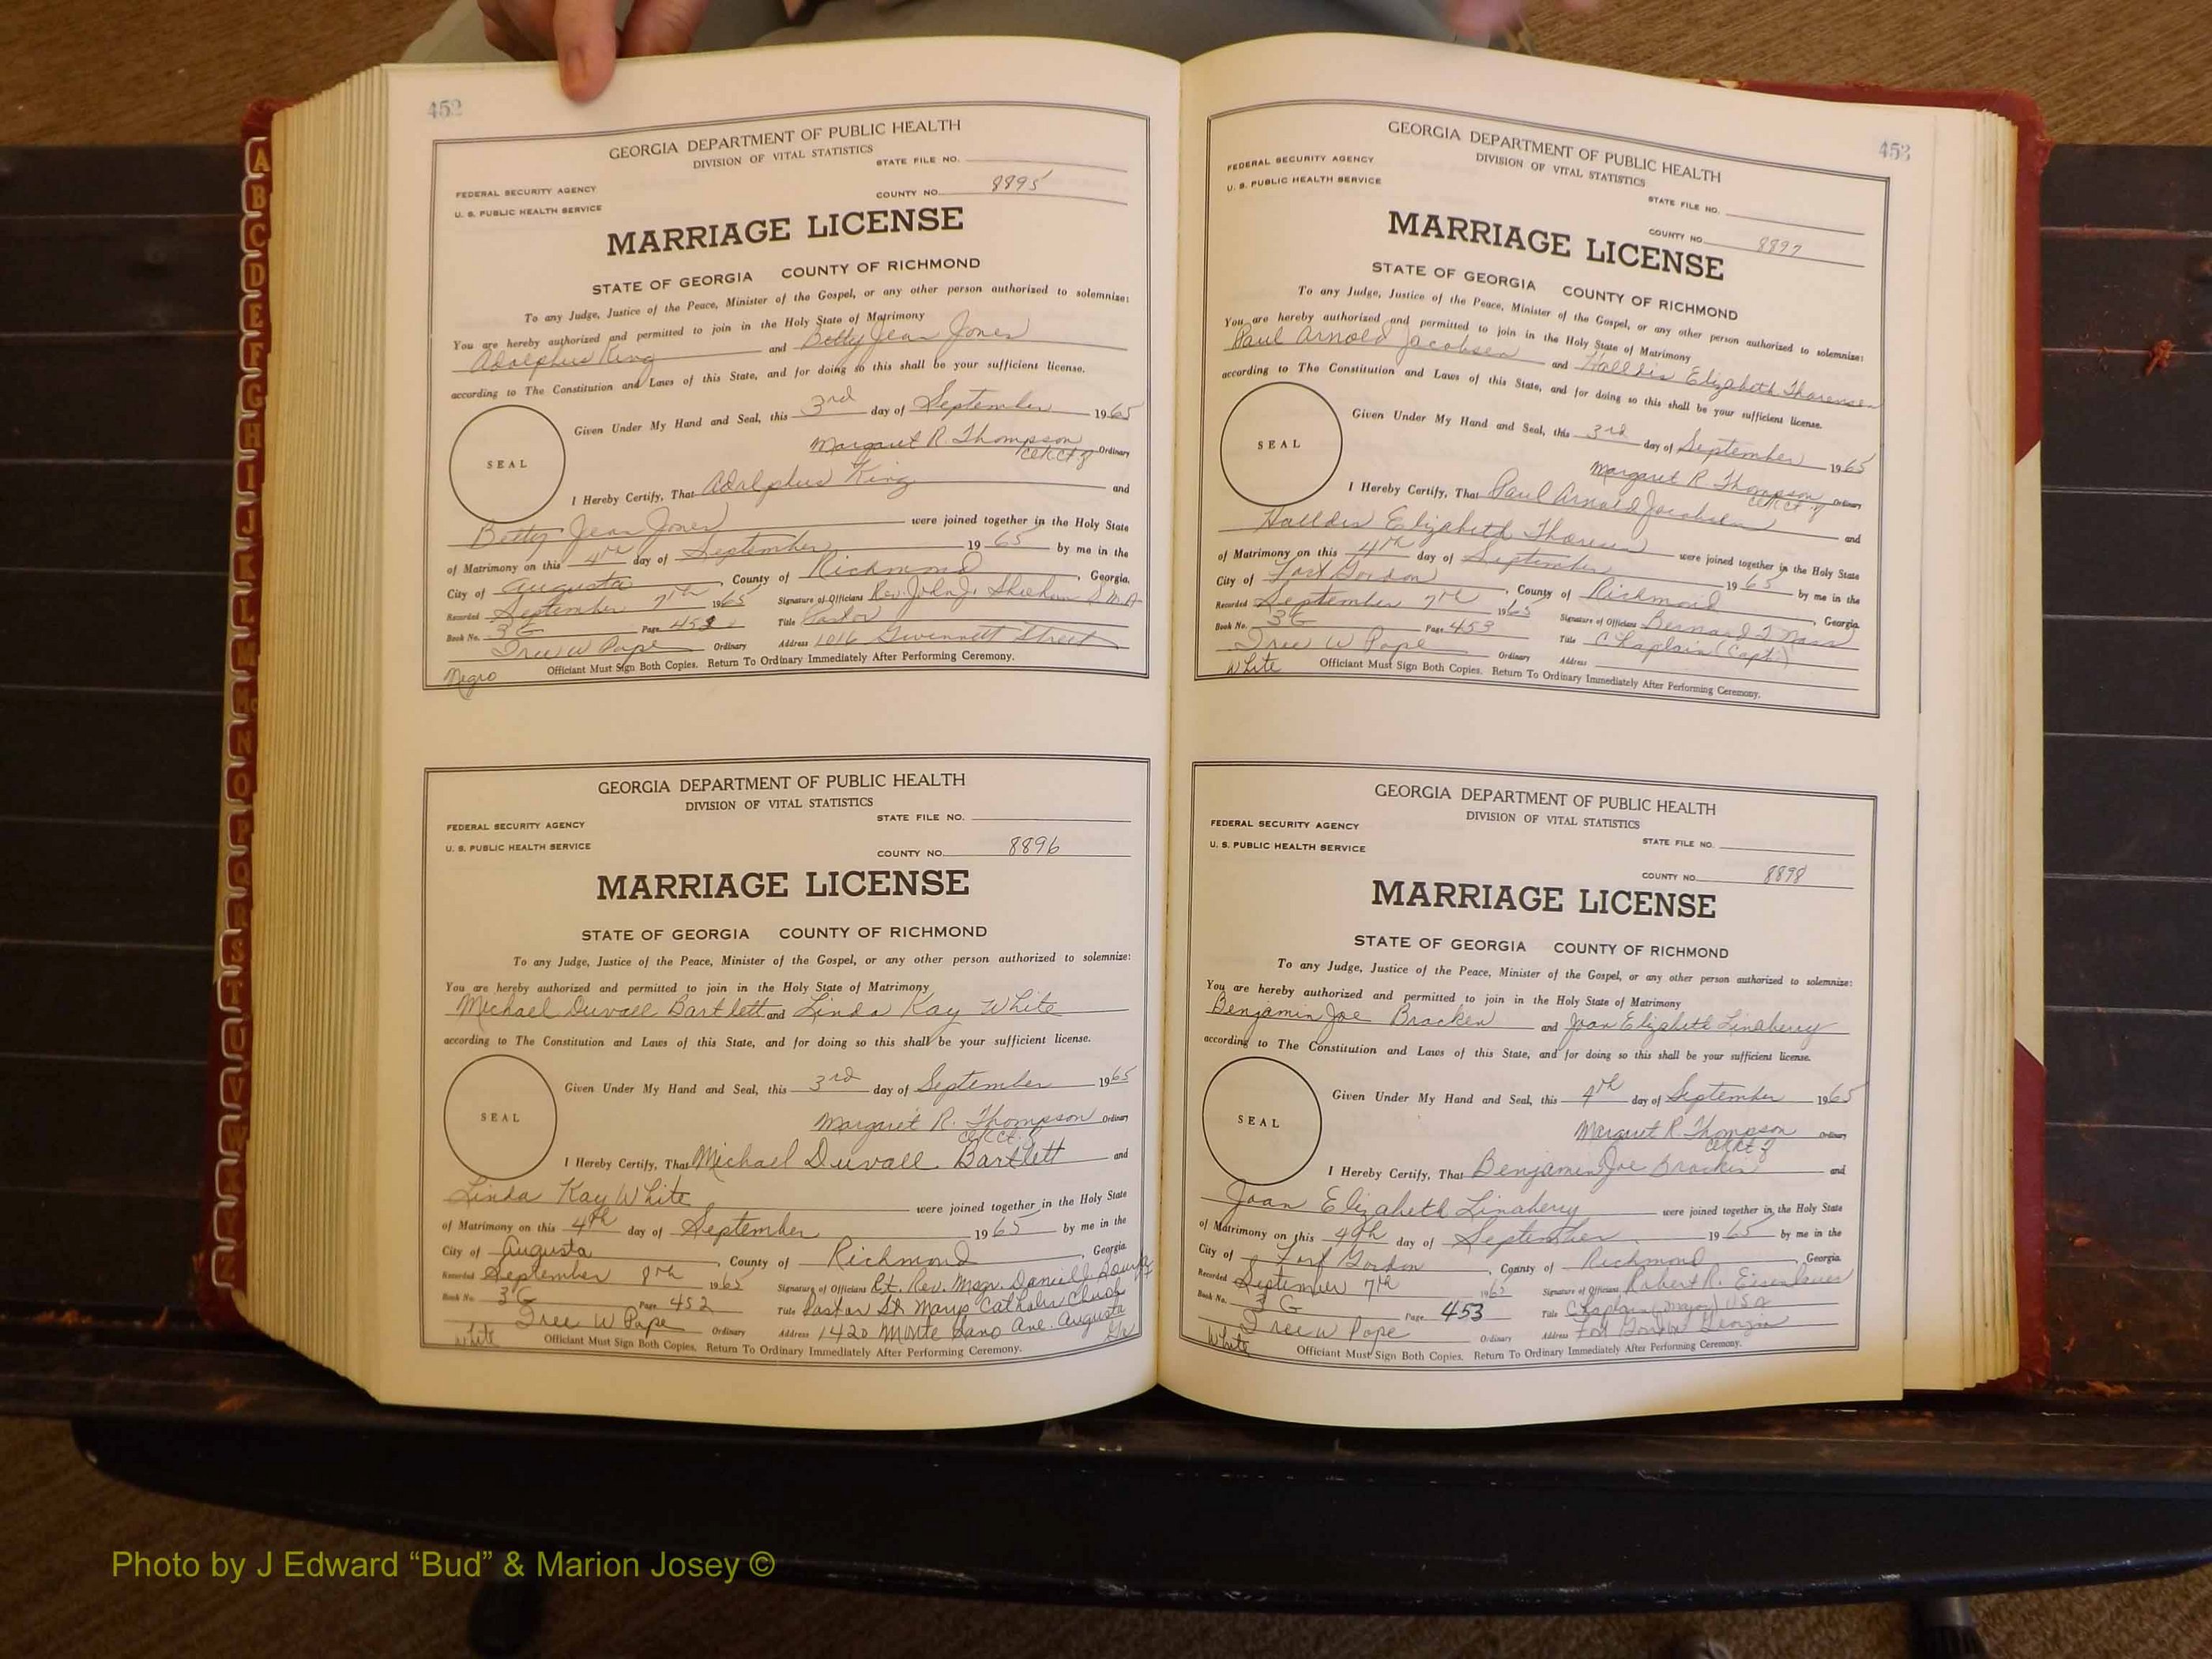 A
B
C
D
E
F
G
H
I
J
K
L
M
Mc
N
O
P
Q
R
S
T
U
V
W
X
Y
Z
452
GEORGIA DEPARTMENT OF PUBLIC HEALTH
DIVISION OF VITAL STATISTICS
STATE FILE NO.
FEDERAL SECURITY AGENCY
U. S. PUBLIC HEALTH SERVICE
COUNTY NO. 8895
MARRIAGE LICENSE
STATE OF GEORGIA COUNTY OF RICHMOND
To any Judge, Justice of the Peace, Minister of the Gospel, or any other person authorized to solemnize:
You are hereby authorized and permitted to join in the Holy State of Matrimony
Adolphus King and Betty Jean Jones
according to The Constitution and Laws of this State, and for doing so this shall be your sufficient license.
SEAL
Given Under My Hand and Seal, this 3rd day of September 1965
Margaret R. Thompson Ordinary
I Hereby Certify, That Adolphus King and
Betty Jean Jones were joined together in the Holy State
of Matrimony on this 4th day of September 1965 by me in the
City of Augusta, County of Richmond, Georgia.
Recorded September 7th 1965 Signature of Officiant Rev. John J. Sheehan S.M.A.
Book No. 3G Page 452 Title Pastor
Tree W Pope Ordinary Address 1016 Gwinnett Street
Negro Officiant Must Sign Both Copies. Return To Ordinary Immediately After Performing Ceremony.
GEORGIA DEPARTMENT OF PUBLIC HEALTH
DIVISION OF VITAL STATISTICS
STATE FILE NO.
FEDERAL SECURITY AGENCY
U. S. PUBLIC HEALTH SERVICE
COUNTY NO. 8896
MARRIAGE LICENSE
STATE OF GEORGIA COUNTY OF RICHMOND
To any Judge, Justice of the Peace, Minister of the Gospel, or any other person authorized to solemnize:
You are hereby authorized and permitted to join in the Holy State of Matrimony
Michael Duvall Bartlett and Linda Kay White
according to The Constitution and Laws of this State, and for doing so this shall be your sufficient license.
SEAL
Given Under My Hand and Seal, this 3rd day of September 1965
Margaret R. Thompson Ordinary
I Hereby Certify, That Michael Duvall Bartlett and
Linda Kay White were joined together in the Holy State
of Matrimony on this 4th day of September 1965 by me in the
City of Augusta, County of Richmond, Georgia.
Recorded September 8th 1965 Signature of Officiant Rt. Rev. Msgr. Daniel J. Bourke
Book No. 3G Page 452 Title Pastor St Marys Catholic Church
Tree W Pope Ordinary Address 1420 Monte Sano Ave. Augusta Ga
White Officiant Must Sign Both Copies. Return To Ordinary Immediately After Performing Ceremony.
453
GEORGIA DEPARTMENT OF PUBLIC HEALTH
DIVISION OF VITAL STATISTICS
FEDERAL SECURITY AGENCY
U. S. PUBLIC HEALTH SERVICE
STATE FILE NO.
COUNTY NO. 8897
MARRIAGE LICENSE
STATE OF GEORGIA COUNTY OF RICHMOND
To any Judge, Justice of the Peace, Minister of the Gospel, or any other person authorized to solemnize:
You are hereby authorized and permitted to join in the Holy State of Matrimony
Paul Arnold Jacobsen and Halldis Elizabeth Thoresen
according to The Constitution and Laws of this State, and for doing so this shall be your sufficient license.
SEAL
Given Under My Hand and Seal, this 3rd day of September 1965
Margaret R Thompson Ordinary
I Hereby Certify, That Paul Arnold Jacobsen and
Halldis Elizabeth Thoresen were joined together in the Holy State
of Matrimony on this 4th day of September 1965 by me in the
City of Fort Gordon, County of Richmond, Georgia
Recorded September 7th 1965 Signature of Officiant Bernard
Book No. 3G Page 453 Title Chaplain (Capt.)
Tree W Pope Ordinary Address
White Officiant Must Sign Both Copies. Return To Ordinary Immediately After Performing Ceremony.
GEORGIA DEPARTMENT OF PUBLIC HEALTH
DIVISION OF VITAL STATISTICS
FEDERAL SECURITY AGENCY
U. S. PUBLIC HEALTH SERVICE
STATE FILE NO.
COUNTY NO. 8898
MARRIAGE LICENSE
STATE OF GEORGIA COUNTY OF RICHMOND
To any Judge, Justice of the Peace, Minister of the Gospel, or any other person authorized to solemnize:
You are hereby authorized and permitted to join in the Holy State of Matrimony
Benjamin Joe Bracken and Joan Elizabeth Linaberry
according to The Constitution and Laws of this State, and for doing so this shall be your sufficient license.
SEAL
Given Under My Hand and Seal, this 4th day of September 1965
Margaret R. Thompson Ordinary
I Hereby Certify, That Benjamin Joe Bracken and
Joan Elizabeth Linaberry were joined together in the Holy State
of Matrimony on this 4th day of September 1965 by me in the
City of Fort Gordon, County of Richmond, Georgia.
Recorded September 7th 1965 Signature of Officiant Robert R.
Book No. 3G Page 453 Title Chaplain (Major) USA
Tree W Pope Ordinary Address Fort Gordon Georgia
White Officiant Must Sign Both Copies. Return To Ordinary Immediately After Performing Ceremony.
Photo by J Edward “Bud” & Marion Josey ©